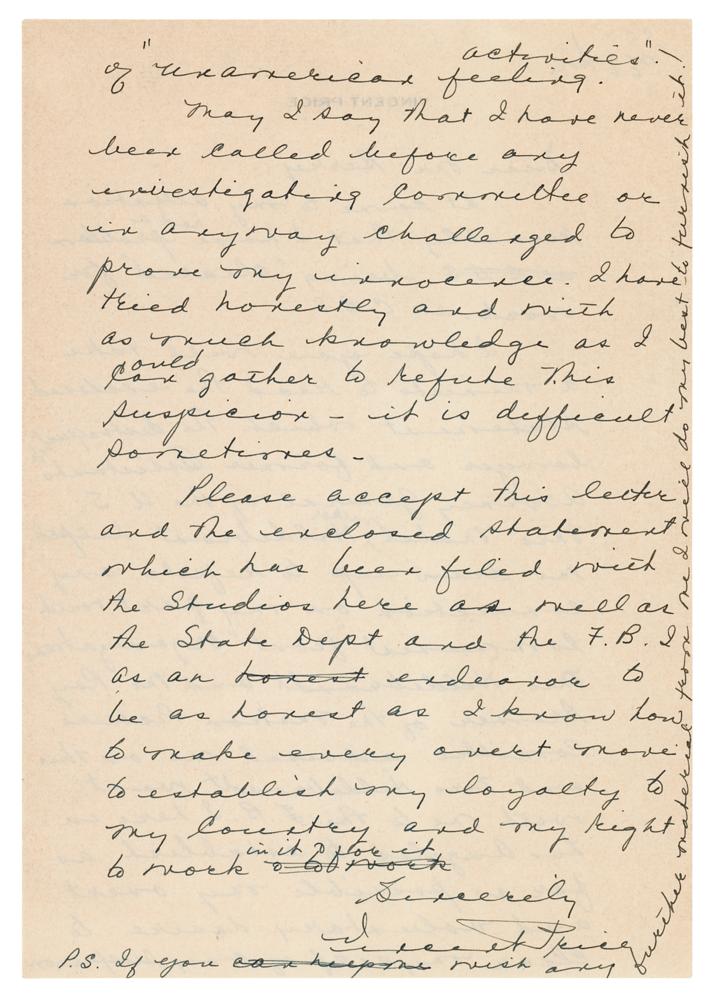 activities"!
of "unamerican feeling.
May I say that I have never
been called before any
investigating Committee or
in anyway challenged to
prove my innocence. I have
tried honestly and with
as much knowledge as I
could
can gather to refute this
suspicion - it is difficult
sometimes -
Please accept this letter
and the enclosed statement
which has been filed with
the Studios here as well as
the State Dept and the F.B.I
as an honest endeavor to
be as honest as I know how
to make every overt move
to establish my loyalty to
my Country and my right
in it & for it
to work
Sincerely
Vincent Price
P.S. If you can help me wish any
further material from me I will do my best to furnish it!
VINCENT PRICE